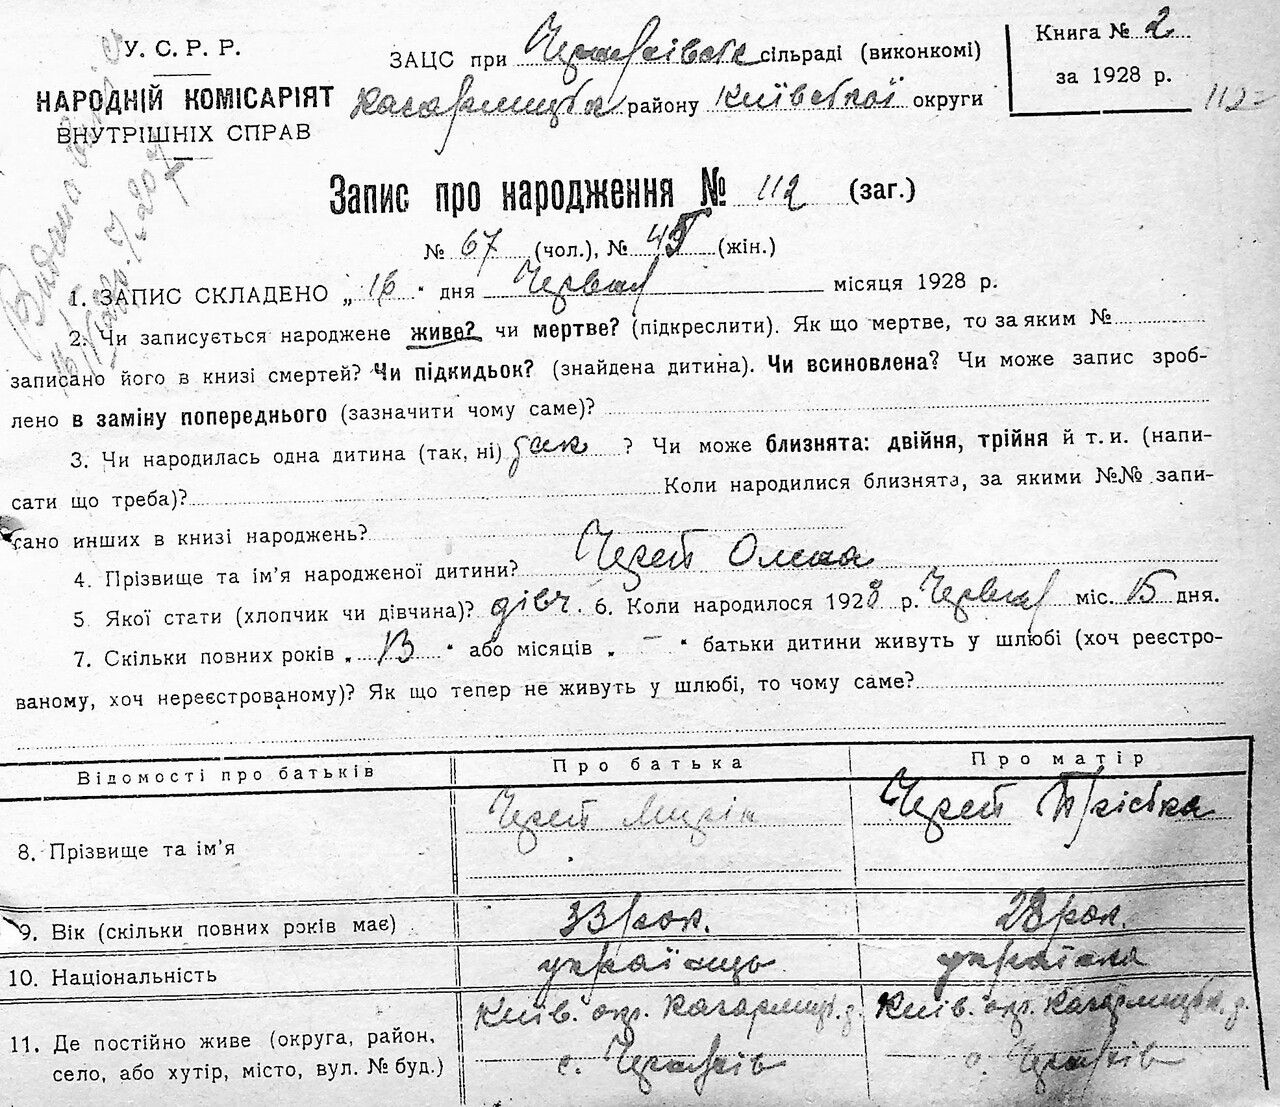 У. С. Р. Р.
НАРОДНІЙ КОМІСАРІЯТ
ВНУТРІШНІХ СПРАВ
ЗАЦС при сільраді (виконкомі)
Кагарлицька району Київської округи
Книга № 2
за 1928 р.
112
Видано
Запис про народження № 112 (заг.)
№ 67 (чол.), № 45 (жін.)
1. ЗАПИС СКЛАДЕНО „ 16 “ дня Червня місяця 1928 р.
2. Чи записується народжене живе? чи мертве? (підкреслити). Як що мертве, то за яким №
записано його в книзі смертей? Чи підкидьок? (знайдена дитина). Чи всиновлена? Чи може запис зроб-
лено в заміну попереднього (зазначити чому саме)?
3. Чи народилась одна дитина (так, ні) так ? Чи може близнята: двійня, трійня й т. и. (напи-
сати що треба)? Коли народилися близнята, за якими №№ запи-
сано инших в книзі народжень?
4. Прізвище та ім'я народженої дитини? Черет Олена
5. Якої стати (хлопчик чи дівчина)? дівч. 6. Коли народилося 1928 р. Червня міс. 15 дня.
7. Скільки повних років „ 13 “ або місяців „ – “ батьки дитини живуть у шлюбі (хоч реєстро-
ваному, хоч нереєстрованому)? Як що тепер не живуть у шлюбі, то чому саме?
Відомості про батьків Про батька Про матір
8. Прізвище та ім'я Черет Черет Трістка
9. Вік (скільки повних років має) 33 рок. 28 рок.
10. Національність українець українка
11. Де постійно живе (округа, район, село, або хутір, місто, вул. № буд.) Київ. окр. Кагарлиц. р. Київ. окр. Кагарлицьк. р.
с. с.